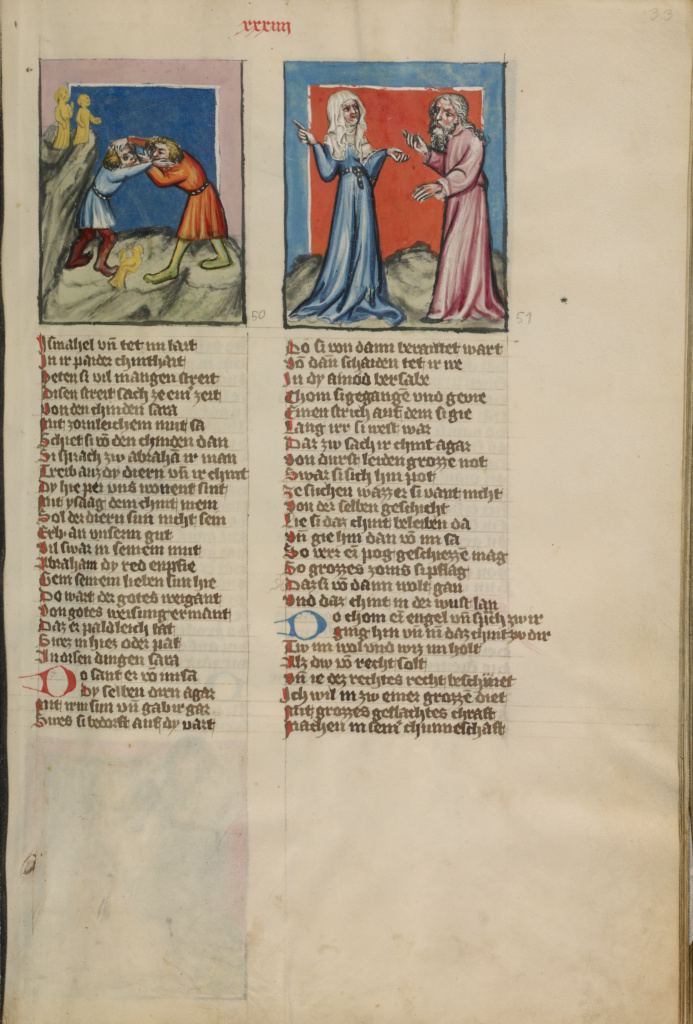 xxxiiij
33
50
51
Ismahel vn̄ tet im hart
In ir paider chinthait
Heten si vil mangen streit
Disen streit sach ze einˀ zeit
Von den chinden sara
Mit zornleichem mut sa
Schiet si vō den chinden dan
Si sprach zw abrahā ir man
Treib auz dy diern vn̄ ir chint
Dy hie pei vns wonent sint
Mit ysaag dem chint mein
Sol der diern sun nicht sein
Erb an vnserm gut
Vil swar in seinem mut
Abraham dy red enpfie
Gein seinem lieben sun hie
Do wart der gotes weigant
Von gotes weisung ermant
Daz er paldleich tat
Swez in hiez oder pat
In disen dingen sara
Do sant er vō im sa
Dy selben diern agar
Mit irm sun vn̄ gab ir gar
Swes si bedorft auf dy vart
Do si von dann wart
Vō dan schaiden tet ir we
In dy ainod bersabe
Chom si gegange vnd gevie
Einen strich auf dem si gie
Lang irr si west war
Dar zw sach ir chint agar
Von durst leiden grozze not
Swar si sich hin pot
Ze suchen wazzer si vant nicht
Von der selben geschicht
Lie si daz chint beleiben da
Vn̄ gie hin dan vō im sa
So verr ein pog geschiezze mag
So grozzes zorns si pflag
Daz si vō dann wolt gan
Vnd daz chint in der wust lan
Do chom ein engel vn̄ sp̄ch zw ir
Ging hin vn̄ nim daz chint zw dir
Tw im wol vnd wiz im holt
Alz dw vō recht solt
Vn̄ ie dez rechtes recht beschinet
Ich wil in zw einer grozze diet
Mit grozzes geslachtes chraft
Machen in seinˀ chunneschaft